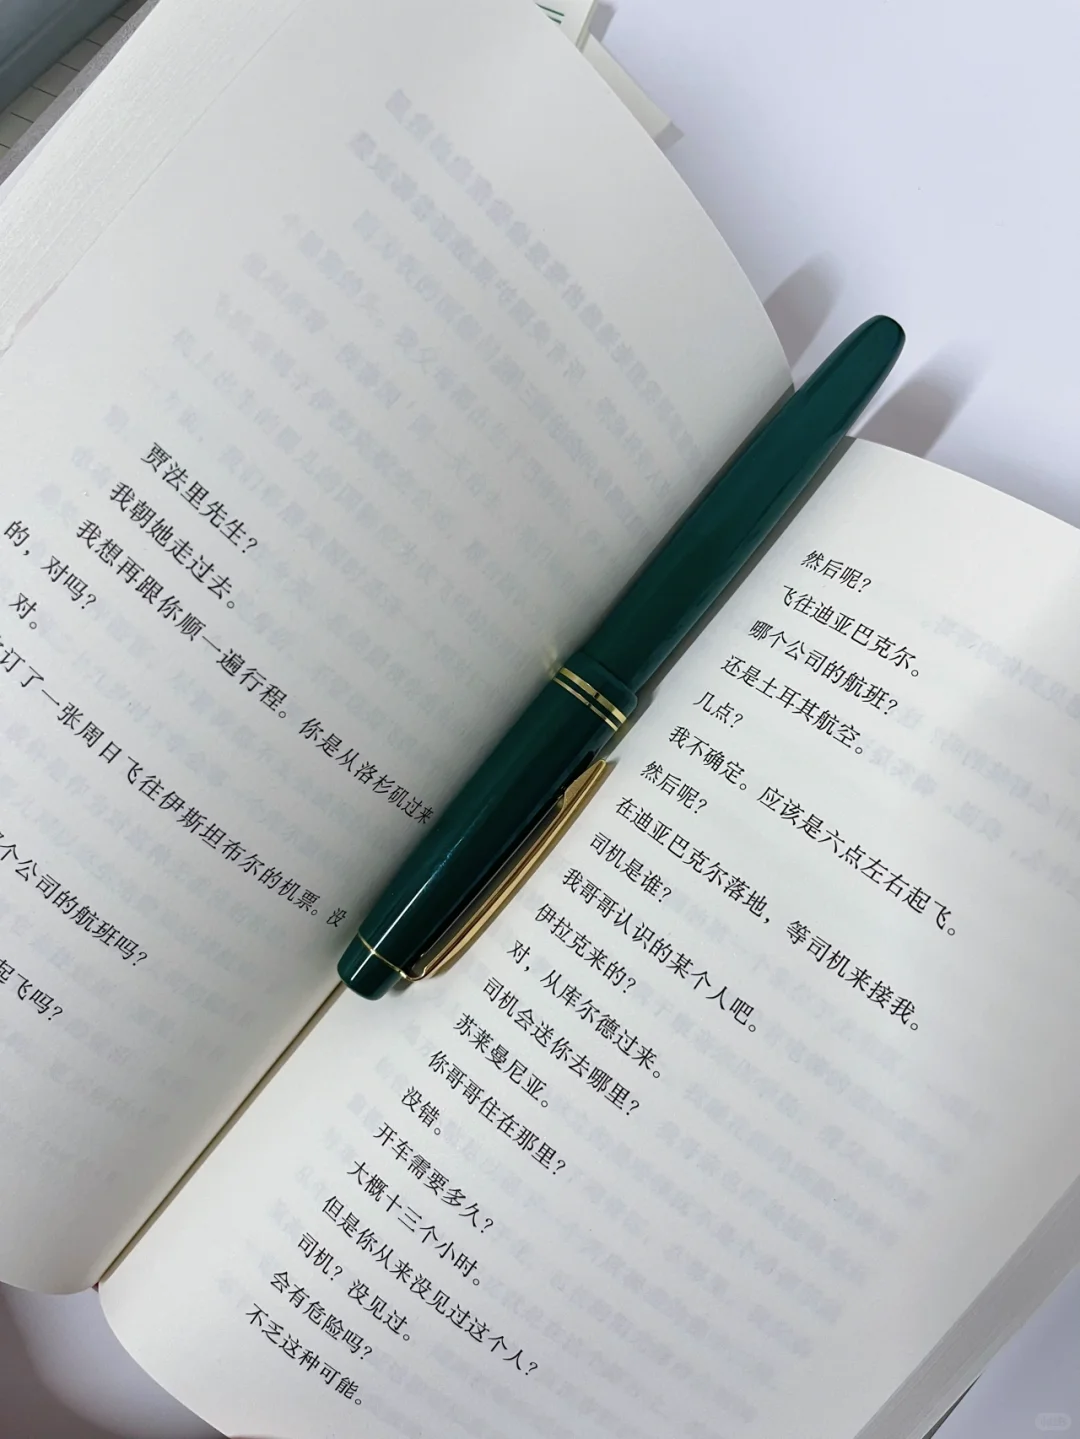 贾法里先生？
我朝她走过去。
我想再跟你顺一遍行程。你是从洛杉矶过来
的，对吗？
对。
订了一张周日飞往伊斯坦布尔的机票。没
个公司的航班吗？
起飞吗？
然后呢？
飞往迪亚巴克尔。
哪个公司的航班？
还是土耳其航空。
几点？
我不确定。应该是六点左右起飞。
然后呢？
在迪亚巴克尔落地，等司机来接我。
司机是谁？
我哥哥认识的某个人吧。
伊拉克来的？
对，从库尔德过来。
司机会送你去哪里？
苏莱曼尼亚。
你哥哥住在那里？
没错。
开车需要多久？
大概十三个小时。
但是你从来没见过这个人？
司机？没见过。
会有危险吗？
不乏这种可能。